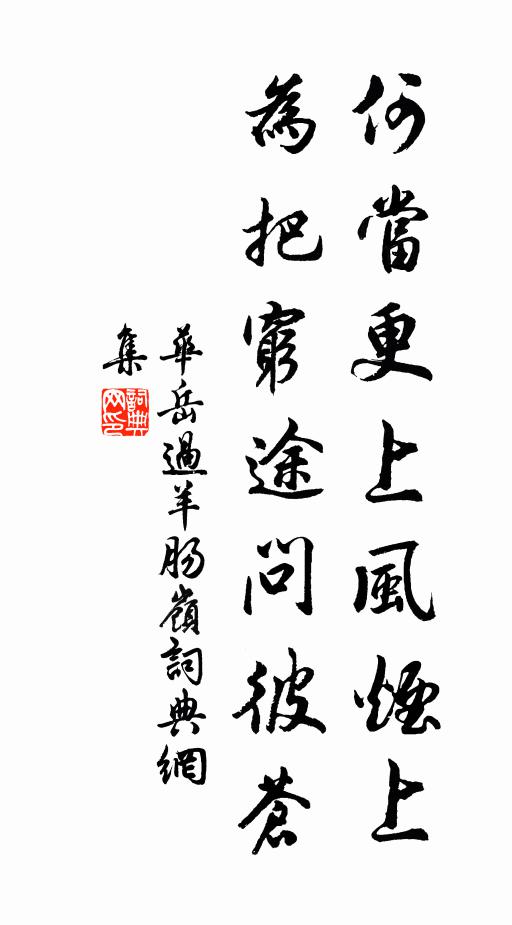 何當更上風煙上
為把窮途問彼蒼
華岳過羊腸嶺詞典網
集
詞典網印